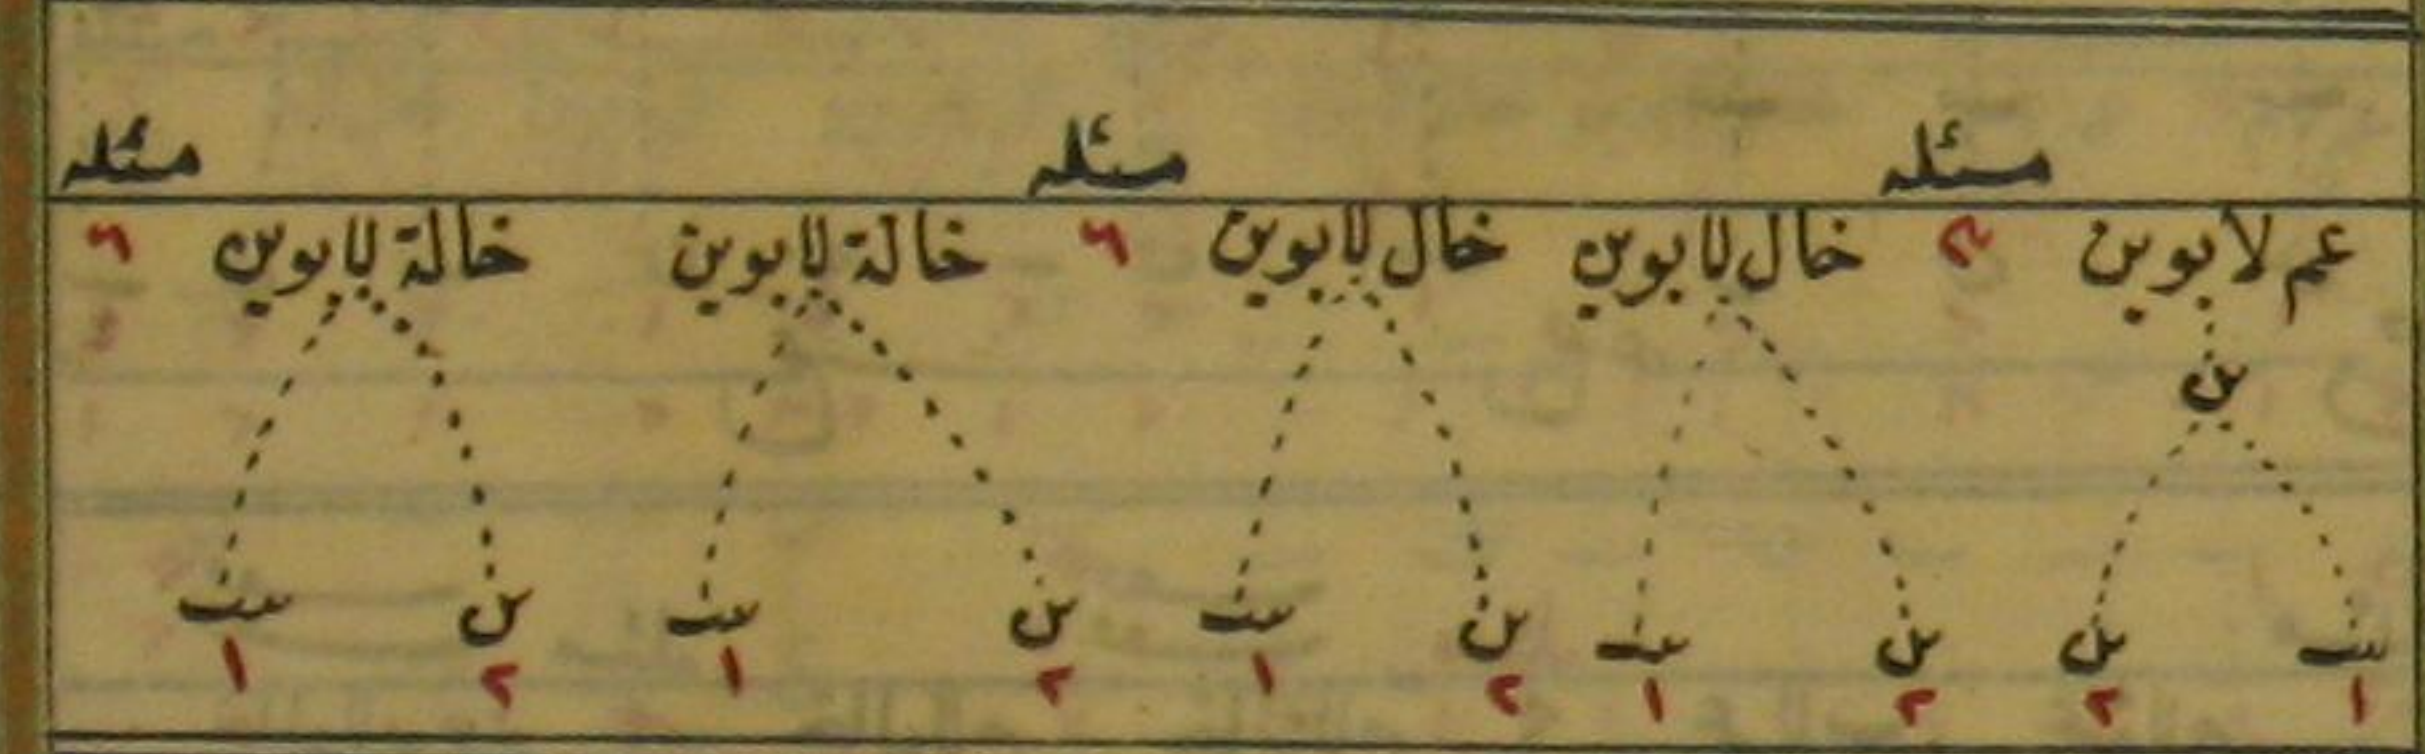 مسئله مسئله مسئله
عم لابوين ٣ خال لابوين خال لابوين ٦ خالة لابوين خالة لابوين ٦
بن
بنت بن بن بنت بن بنت بن بنت بن بنت
١ ٢ ٢ ١ ٢ ١ ٢ ١ ٢ ١